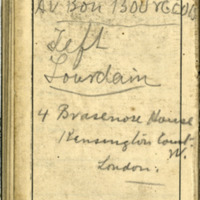 AV BON BOURGEOIS
Left
Lourdain
4 Brasenose House
Kensington Court.
W.
London.